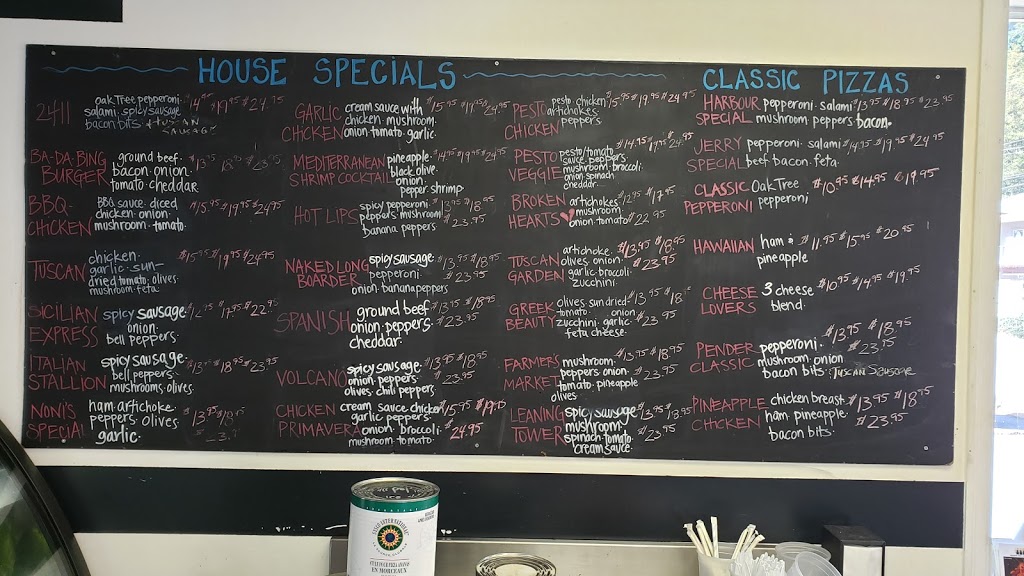 HOUSE SPECIALS
2411
oak Tree pepperoni
salami spicy sausage
bacon bits
$19.95 $24.95
BA-DA-BING
BURGER
ground beef
bacon onion
tomato cheddar
BBQ
CHICKEN
BBQ sauce diced
chicken onion
mushroom tomato
$15.95 $19.95 $24.95
TUSCAN
chicken
garlic sun-
dried tomato olives
mushroom feta
$15.95 $19.95 $24.95
SICILIAN
EXPRESS
spicy sausage
onion
bell peppers
ITALIAN
STALLION
spicy sausage
bell peppers
mushrooms olives
NONI'S
SPECIAL
ham artichoke
peppers olives
garlic
GARLIC
CHICKEN
cream sauce with
chicken mushroom
onion tomato garlic
MEDITERRANEAN
SHRIMP COCKTAIL
pineapple
black olive
onion
pepper shrimp
$14.95 $19.95 $24.95
HOT LIPS
spicy pepperoni
peppers mushroom
banana peppers
$13.95 $18.95
$23.95
NAKED LONG
BOARDER
spicy sausage
pepperoni
onion banana peppers
$13.95 $18.95
$23.95
SPANISH
ground beef
onion peppers
cheddar
$13.95 $18.95
$23.95
VOLCANO
spicy sausage
onion peppers
olives chili peppers
$13.95 $18.95
$23.95
CHICKEN
PRIMAVERA
cream sauce chicken
garlic peppers
onion broccoli
mushroom tomato
$24.95
PESTO
CHICKEN
pesto chicken
artichokes
peppers
$15.95 $19.95 $24.95
PESTO
VEGGIE
pesto/tomato
sauce peppers
mushroom broccoli
onion spinach
cheddar
$14.95 $19.95 $24.95
BROKEN
HEARTS
artichokes
mushroom
onion tomato
$22.95
TUSCAN
GARDEN
artichoke
olives onion
garlic broccoli
zucchini
$13.95 $18.95
$23.95
GREEK
BEAUTY
olives sundried
tomato onion
zucchini garlic
feta cheese
FARMER'S
MARKET
mushroom
peppers onion
tomato pineapple
olives
$13.95 $18.95
$23.95
LEANING
TOWER
spicy sausage
mushroom
spinach tomato
cream sauce
$23.95
CLASSIC PIZZAS
HARBOUR
SPECIAL
pepperoni salami
mushroom peppers bacon
$13.95 $18.95 $23.95
JERRY
SPECIAL
pepperoni salami
beef bacon feta
$14.95 $19.95 $24.95
CLASSIC
PEPPERONI
Oak Tree
pepperoni
$10.95 $14.95 $19.95
HAWAIIAN
ham &
pineapple
$11.95 $15.95 $20.95
CHEESE
LOVERS
3 cheese
blend
$10.95 $14.95 $19.95
PENDER
CLASSIC
pepperoni
mushroom onion
bacon bits Tuscan Sausage
$13.95 $18.95
$23.95
PINEAPPLE
CHICKEN
chicken breast
ham pineapple
bacon bits
$13.95 $18.95
$23.95
EN MORCEAUX